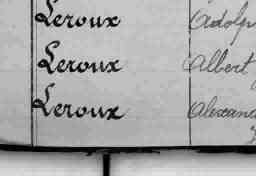 Leroux Adolp
Leroux Albert
Leroux Alexan